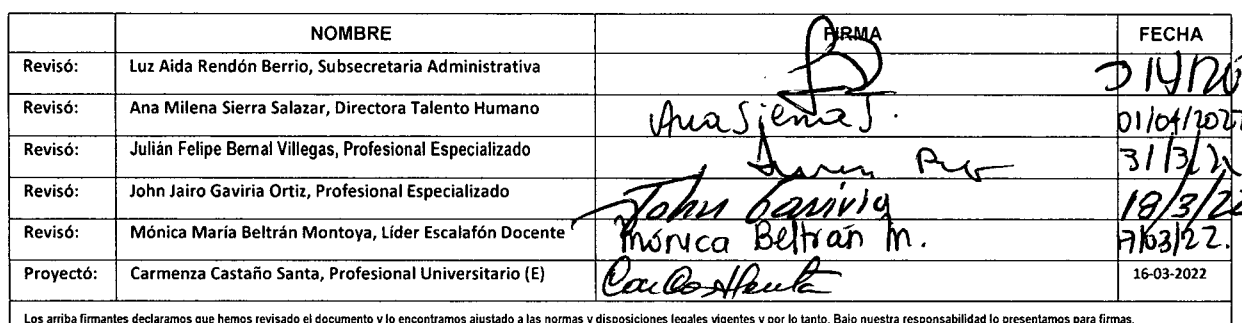 NOMBRE FIRMA FECHA
Revisó: Luz Aida Rendón Berrio, Subsecretaria Administrativa
Revisó: Ana Milena Sierra Salazar, Directora Talento Humano Ana Sierra S. 01/04/202
Revisó: Julián Felipe Bernal Villegas, Profesional Especializado 31/3/2
Revisó: John Jairo Gaviria Ortiz, Profesional Especializado John Gaviria 18/3/22
Revisó: Mónica María Beltrán Montoya, Líder Escalafón Docente Mónica Beltrán M. 17/03/22.
Proyectó: Carmenza Castaño Santa, Profesional Universitario (E) 16-03-2022
Los arriba firmantes declaramos que hemos revisado el documento y lo encontramos ajustado a las normas y disposiciones legales vigentes y por lo tanto. Bajo nuestra responsabilidad lo presentamos para firmas.